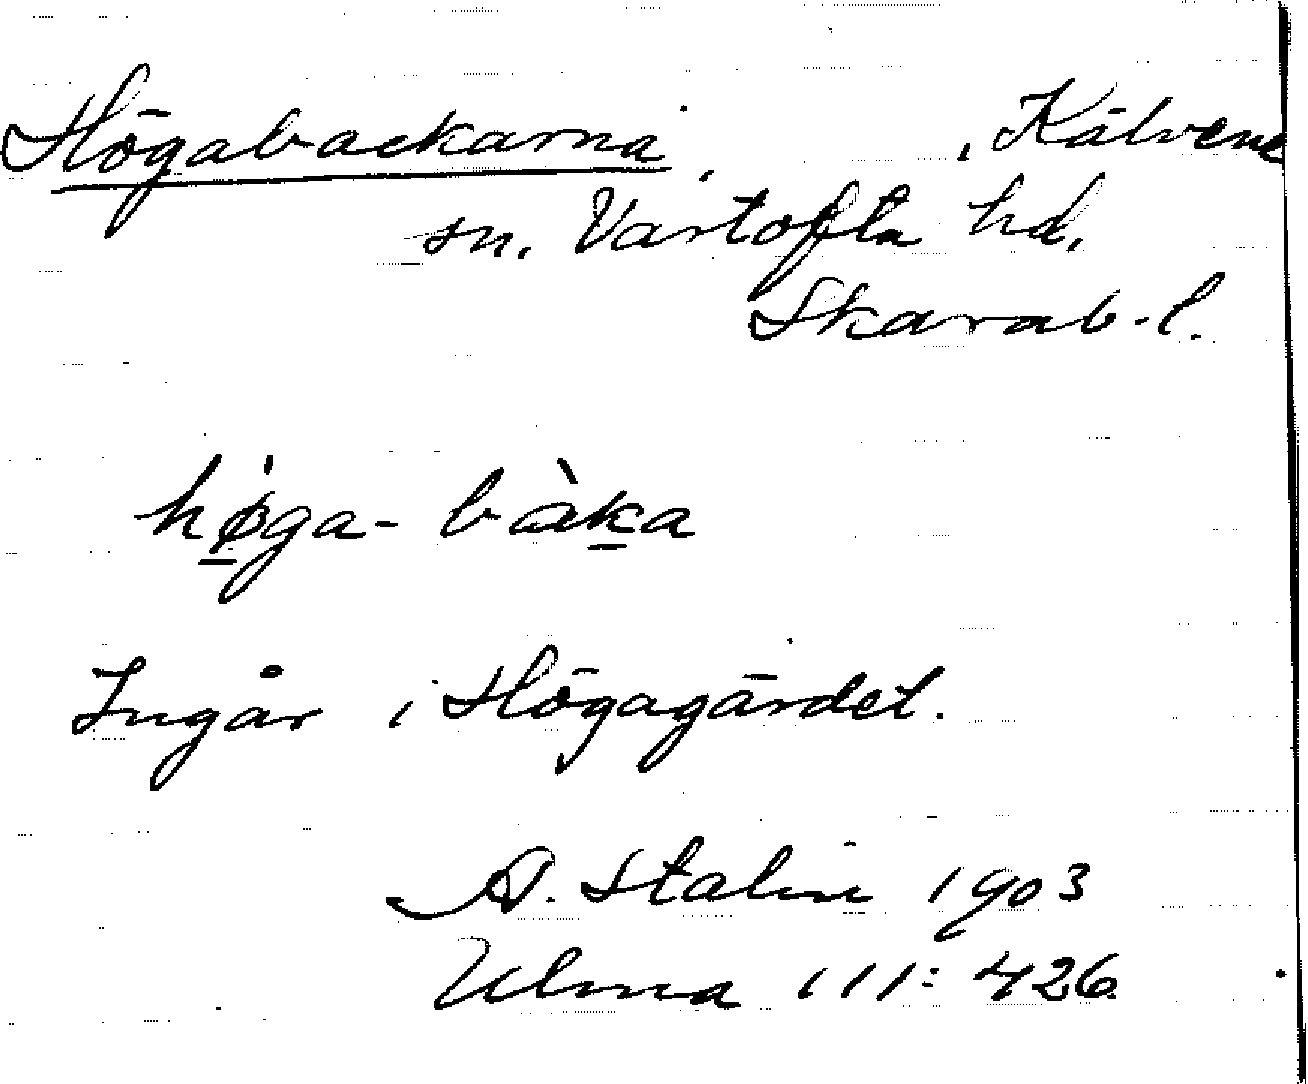 Högabackarna, , Kälvene
sn. Vartofta hd,
Skarab. l.
hø̱̀ga- bàḵa
Ingår i Högagärdet.
A. Stalin 1903
Ulma 111: 426.